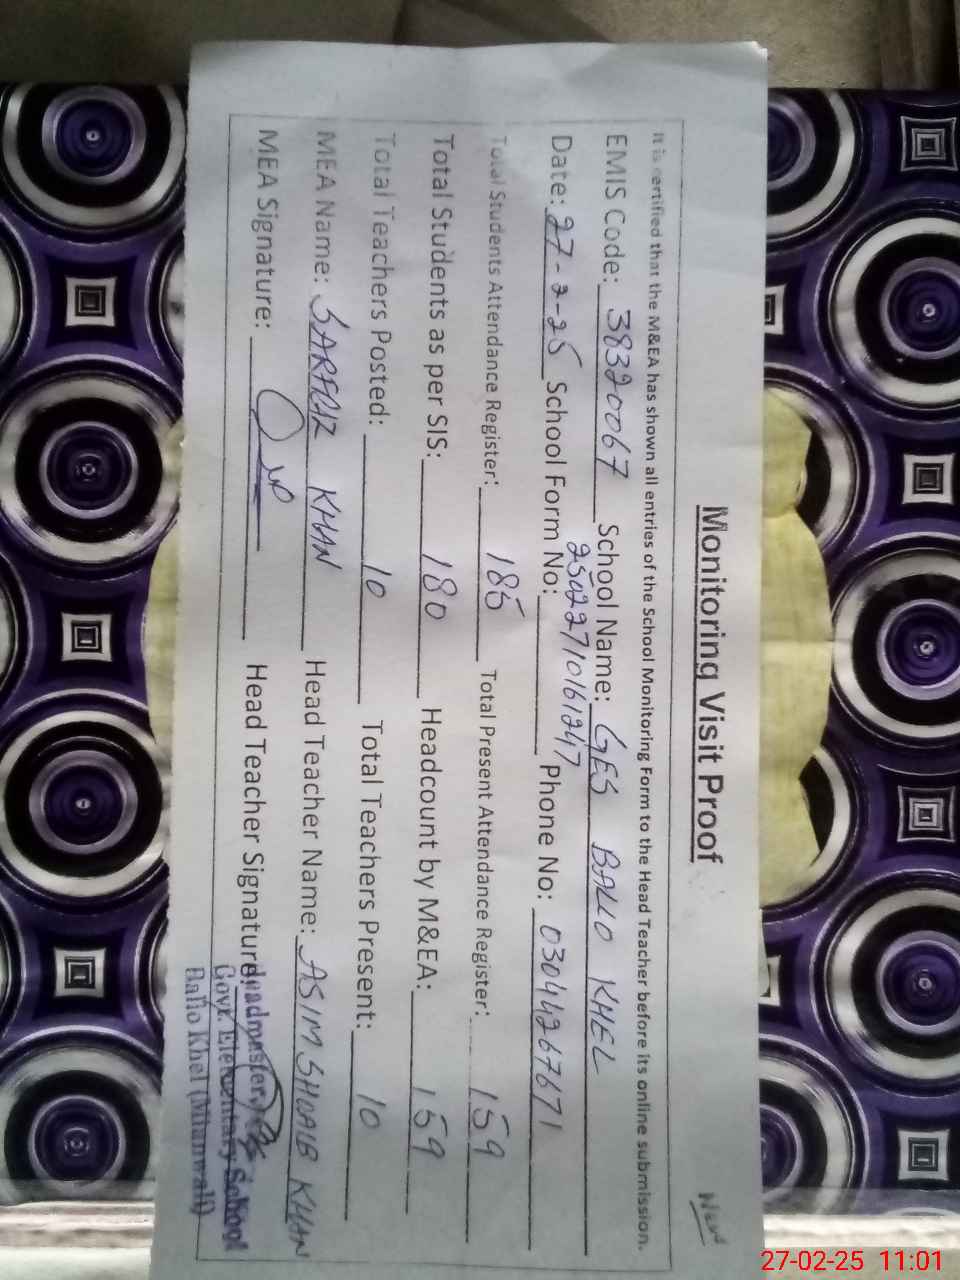 Monitoring Visit Proof
New
It is certified that the M&EA has shown all entries of the School Monitoring Form to the Head Teacher before its online submission.
EMIS Code: 38320067 School Name: GES BALLO KHEL
Date: 27-2-25 School Form No: 25022710161247 Phone No: 03044267671
Total Students Attendance Register: 185 Total Present Attendance Register: 159
Total Students as per SIS: 180 Headcount by M&EA: 159
Total Teachers Posted: 10 Total Teachers Present: 10
MEA Name: SARFRAZ KHAN Head Teacher Name: ASIM SHOAIB KHAN
MEA Signature: Head Teacher Signature:
Headmaster
Govt. Elementary School
Ballo Khel (Mianwali)
27-02-25 11:01